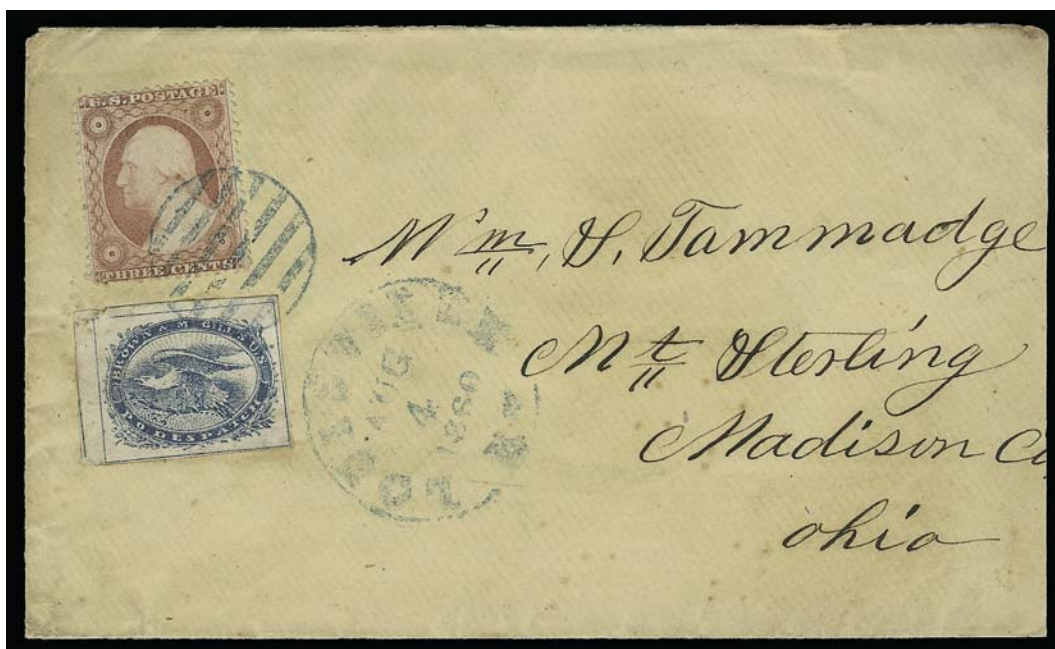 U.S. POSTAGE
THREE CENTS
BROWN & M GILL'S U.S.
P.O. DESPATCH
LOUISVILLE KY
AUG
4
1860
Wm, H. Tammadge
Mt Sterling
Madison Co
Ohio